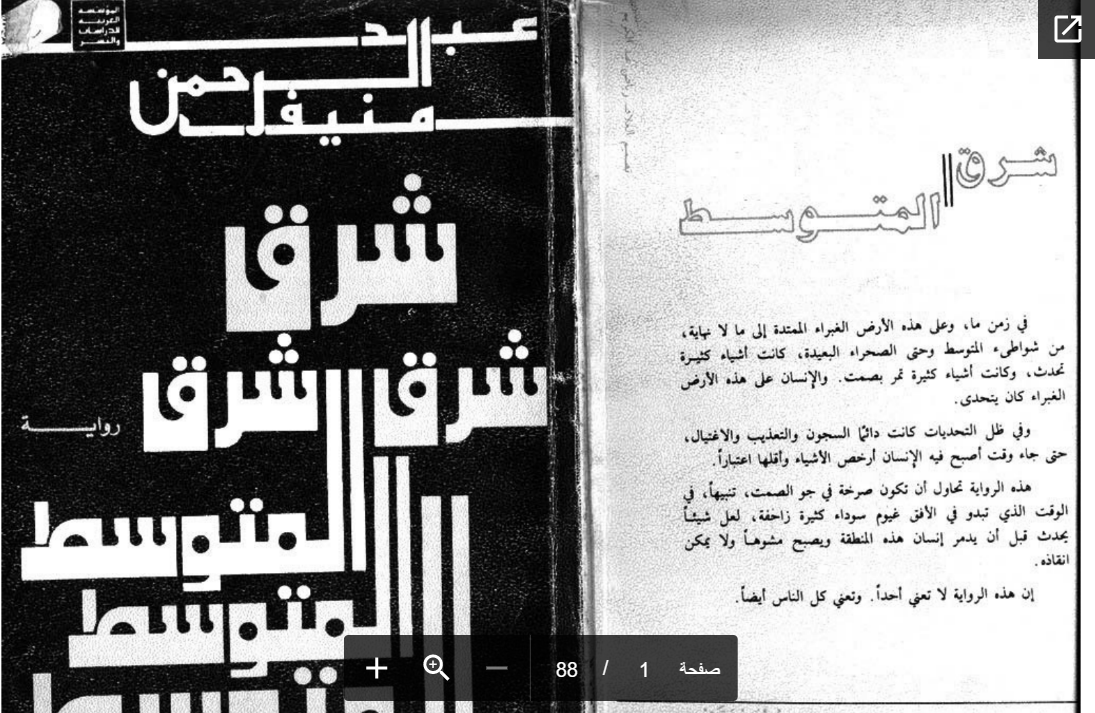 المؤسسة
العربية
للدراسات
والنشر
عبد
الرحمن
منيف
شرق
شرق
شرق
رواية
المتوسط
المتوسط
المتوسط
شرق
المتوسط
في زمن ما، وعلى هذه الأرض الغبراء الممتدة إلى ما لا نهاية،
من شواطىء المتوسط وحتى الصحراء البعيدة، كانت أشياء كثيرة
تحدث، وكانت أشياء كثيرة تمر بصمت. والإنسان على هذه الأرض
الغبراء كان يتحدى.
وفي ظل التحديات كانت دائمًا السجون والتعذيب والاغتيال،
حتى جاء وقت أصبح فيه الإنسان أرخص الأشياء وأقلها اعتباراً.
هذه الرواية تحاول أن تكون صرخة في جو الصمت، تنبيهاً، في
الوقت الذي تبدو في الأفق غيوم سوداء كثيرة زاحفة، لعل شيئاً
يحدث قبل أن يدمر إنسان هذه المنطقة ويصبح مشوهاً ولا يمكن
انقاذه.
إن هذه الرواية لا تعني أحداً. وتعني كل الناس أيضاً.
صفحة 1 / 88